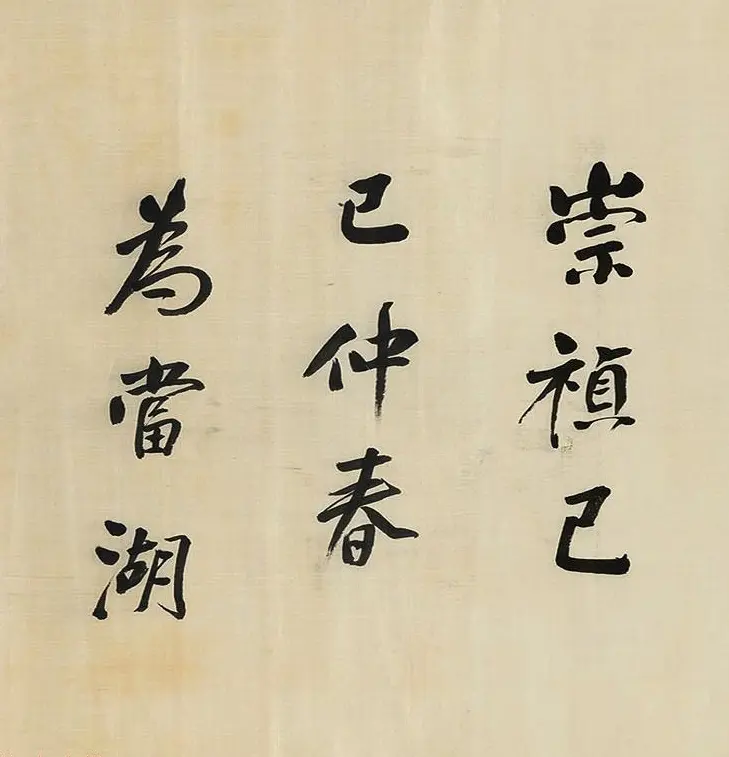 崇禎己
巳仲春
為當湖